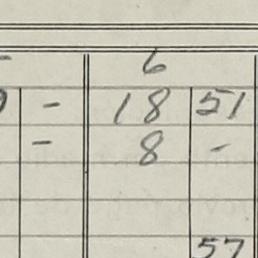 6
- 18 51
- 8 -
57